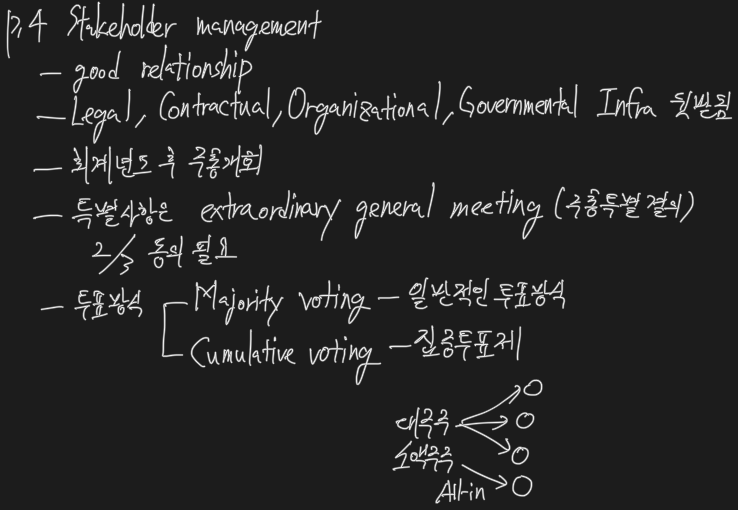 p.4 Stakeholder management
- good relationship
- Legal, Contractual, Organizational, Governmental Infra 뒷받침
- 회계년도 후 주총개최
- 특별사항은 extraordinary general meeting (주총특별결의)
2/3 동의 필요
- 투표방식
Majority voting - 일반적인 투표방식
Cumulative voting - 집중투표제
대주주
소액주주
All-in